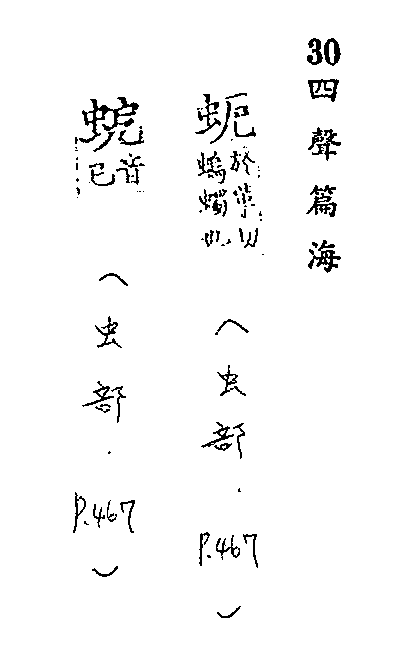 30四聲篇海
蚅
於革
螐蠋也
(虫部．P.467)
音已
(虫部．P.467)